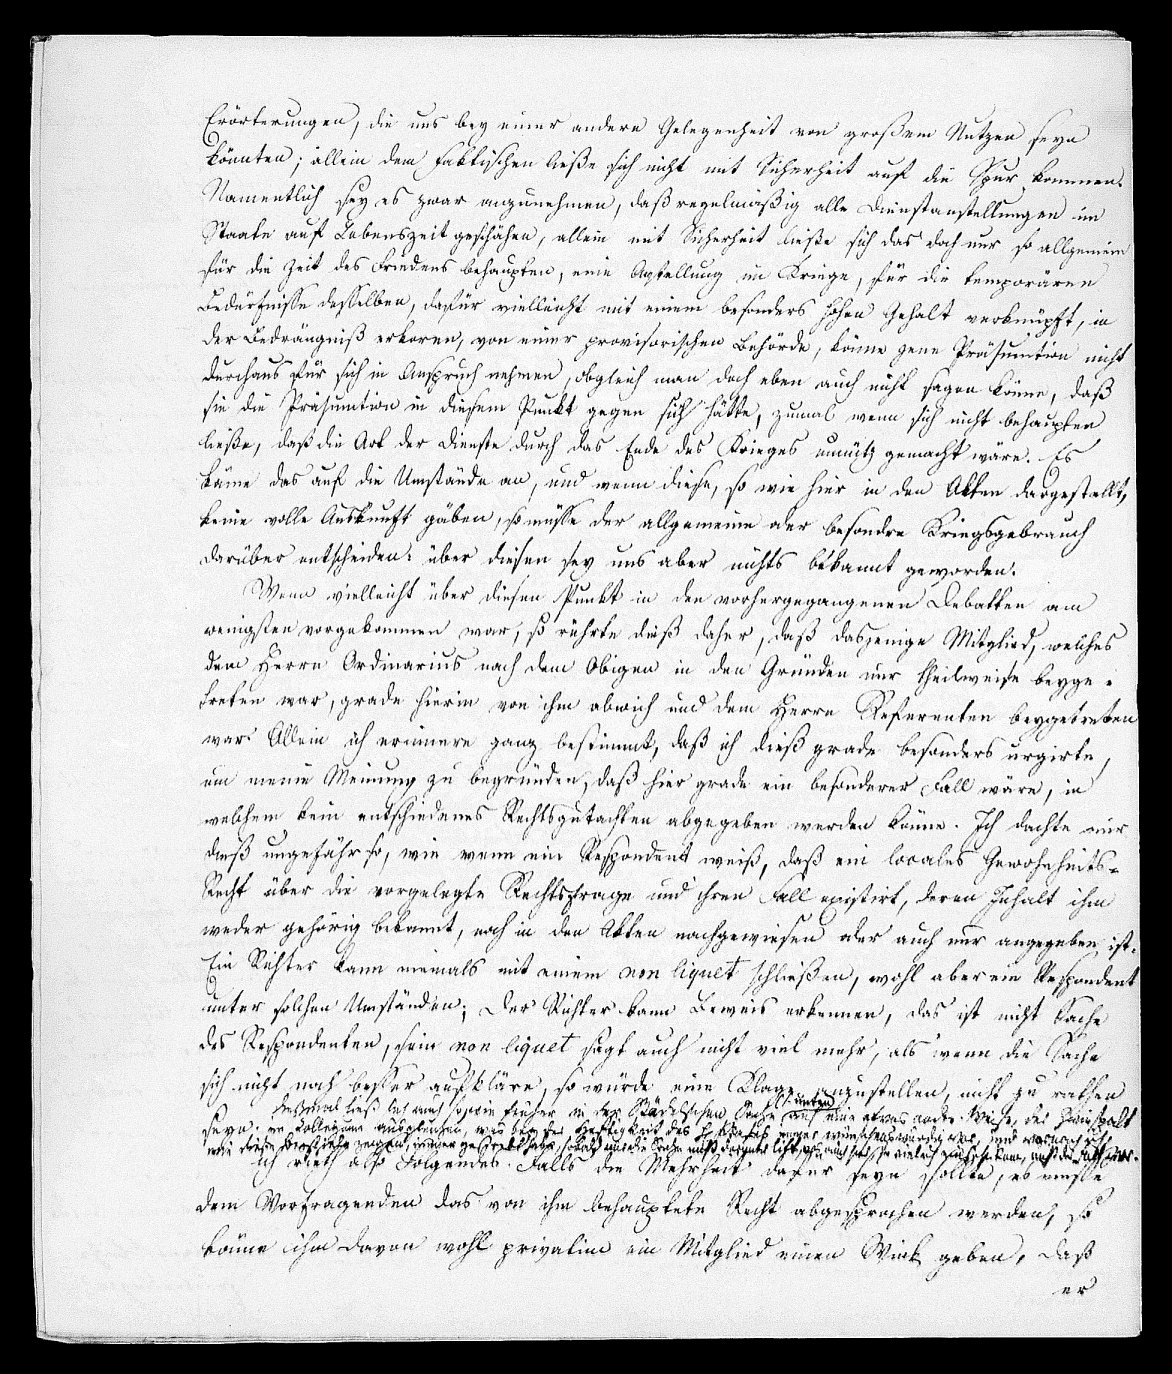 Erörterungen, die uns bey einer andern Gelegenheit von großem Nutzen seyn
könnten; allein dem Faktischen ließe sich nicht mit Sicherheit auf die Spur kommen.
Namentlich sey es zwar anzunehmen, daß regelmäßig alle Dienstanstellungen im
Staate auf Lebenszeit geschähen, allein mit Sicherheit ließe sich das doch nur so allgemein
für die Zeit des Friedens behaupten, eine Anstellung im Kriege, für die temporären
Bedürfnisse desselben, dafür vielleicht mit einem besonders hohen Gehalt verknüpft, in
der Bedrängniß erkoren, von einer provisorischen Behörde, könne jene Präsumtion nicht
durchaus für sich in Anspruch nehmen, obgleich man doch eben auch nicht sagen könne, daß
sie die Präsumtion in diesem Punkt gegen sich hätte, zumal wenn sich nicht behaupten
ließe, daß die Art der Dienste durch das Ende des Krieges unnütz gemacht wäre. Es
käme das auf die Umstände an, und wenn diese, so wie hier in den Akten dargestellt,
keine volle Auskunft gäben, so müsse der allgemeine oder besondre Kriegsgebrauch
darüber entscheiden: über diesen sey uns aber nichts bekannt geworden.
Wenn vielleicht über diesen Punkt in den vorhergegangenen Debatten am
wenigsten vorgekommen war, so rührte dieß daher, daß dasjenige Mitglied, welches
dem Herrn Ordinarius nach dem Obigen in den Gründen nur theilweise beyge-
treten war, grade hierin von ihm abwich und dem Herrn Referenten beygetreten
war. Allein ich erinnere ganz bestimmt, daß ich dieß grade besonders urgirte,
um meine Meinung zu begründen, daß hier grade ein besonderer Fall wäre, in
welchem kein entschiedenes Rechtsgutachten abgegeben werden könne. Ich dachte mir
dieß ungefähr so, wie wenn ein Respondent weiß, daß ein locales Gewohnheits-
Recht über die vorgelegte Rechtsfrage und ihren Fall existirt, deren Inhalt ihm
weder gehörig bekannt, noch in den Akten nachgewiesen oder auch nur angegeben ist.
Ein Richter kann niemals mit einem non liquet schließen, wohl aber ein Respondent
unter solchen Umständen; der Richter kann Beweis erkennen, das ist nicht Sache
des Respondenten, sein non liquet sagt auch nicht viel mehr, als wenn die Sache
sich nicht noch besser aufkläre, so würde eine Klage anzustellen, nicht zu rathen
seyn.
ließ auch sowie früher in der Städelschen Sache auf eine etwas andre Weise, der Zwiespalt
im Collegium ausgleichen, was bey der Heftigkeit des
ich rieth also Folgendes. Falls die Mehrheit dafür seyn sollte, es müsse
dem Vortragenden das von ihm behauptete Recht abgesprochen werden, so
könne ihm davon wohl privatim ein Mitglied einen Wink geben, daß
er